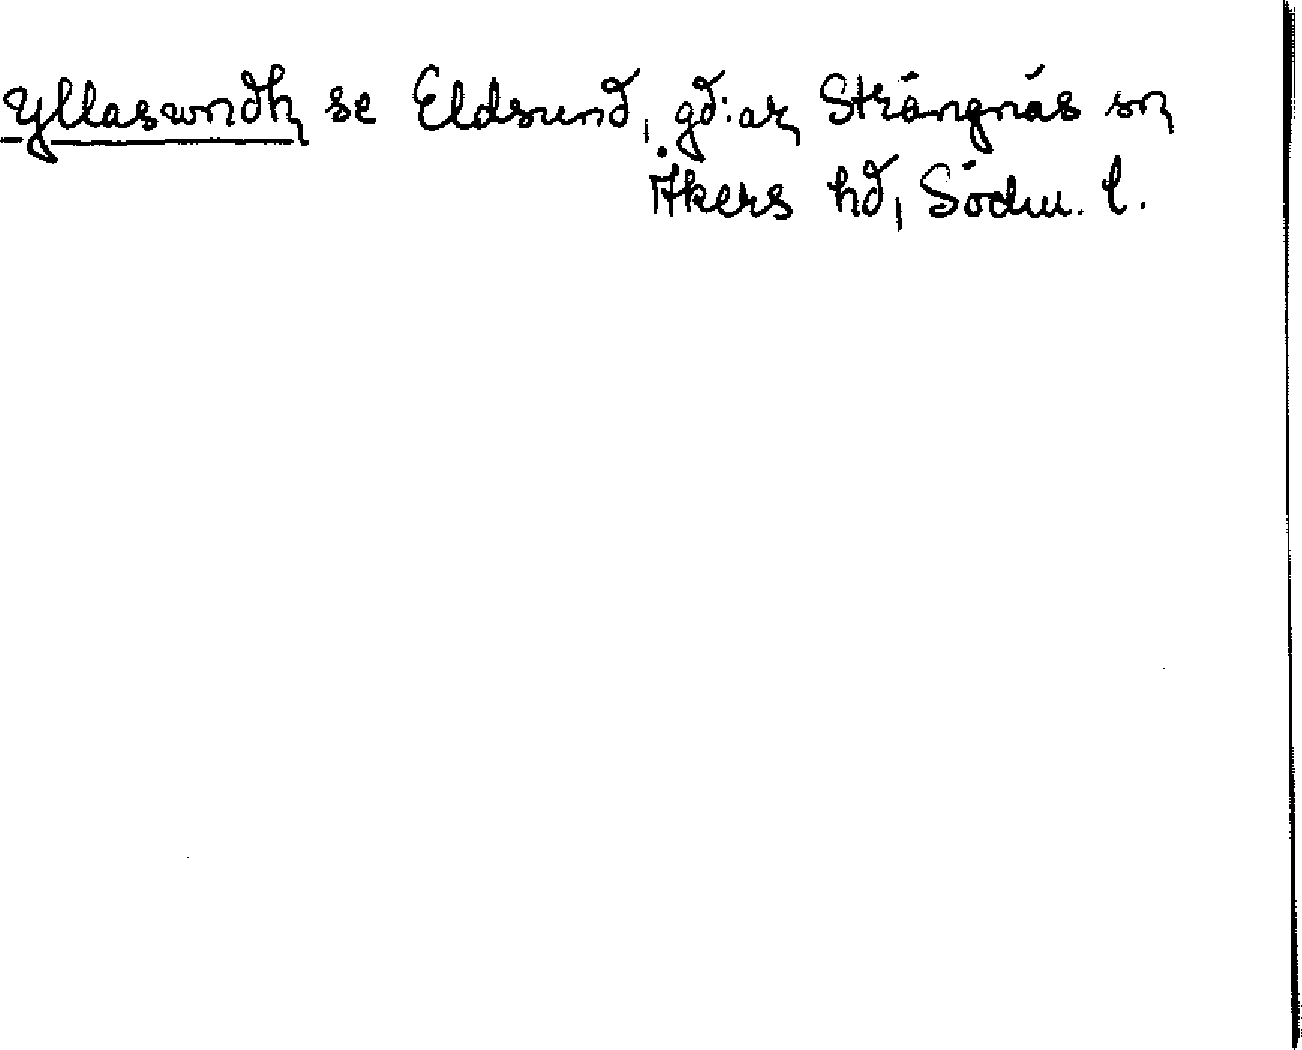 Yllaswndh, se Eldsund, gd:ar, Strängnäs sn,
Åkers hd, Södm. l.